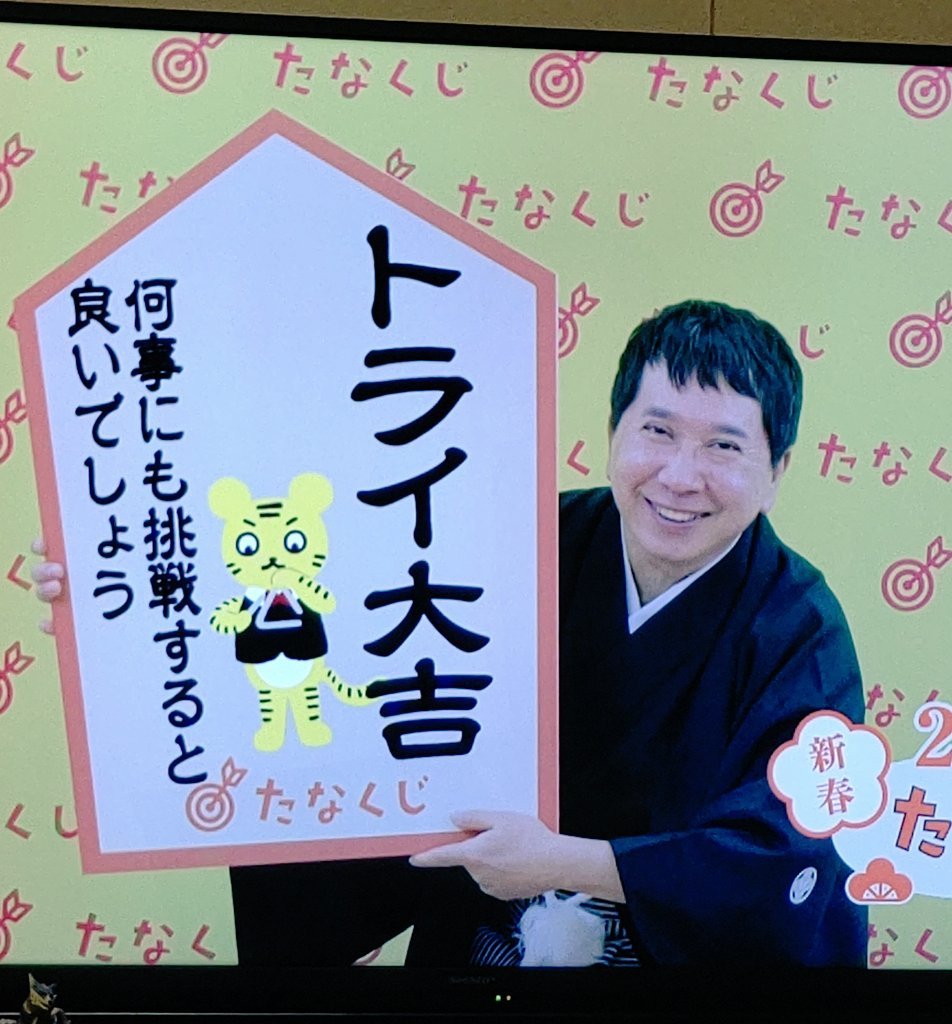 くじ
たなくじ
たなくじ
たな
たなくじ
たなく
トライ大吉
何事にも挑戦すると
良いでしょう
たなくじ
じ
く
たなく
なく
新春
2
た
くじ
たなく
なく